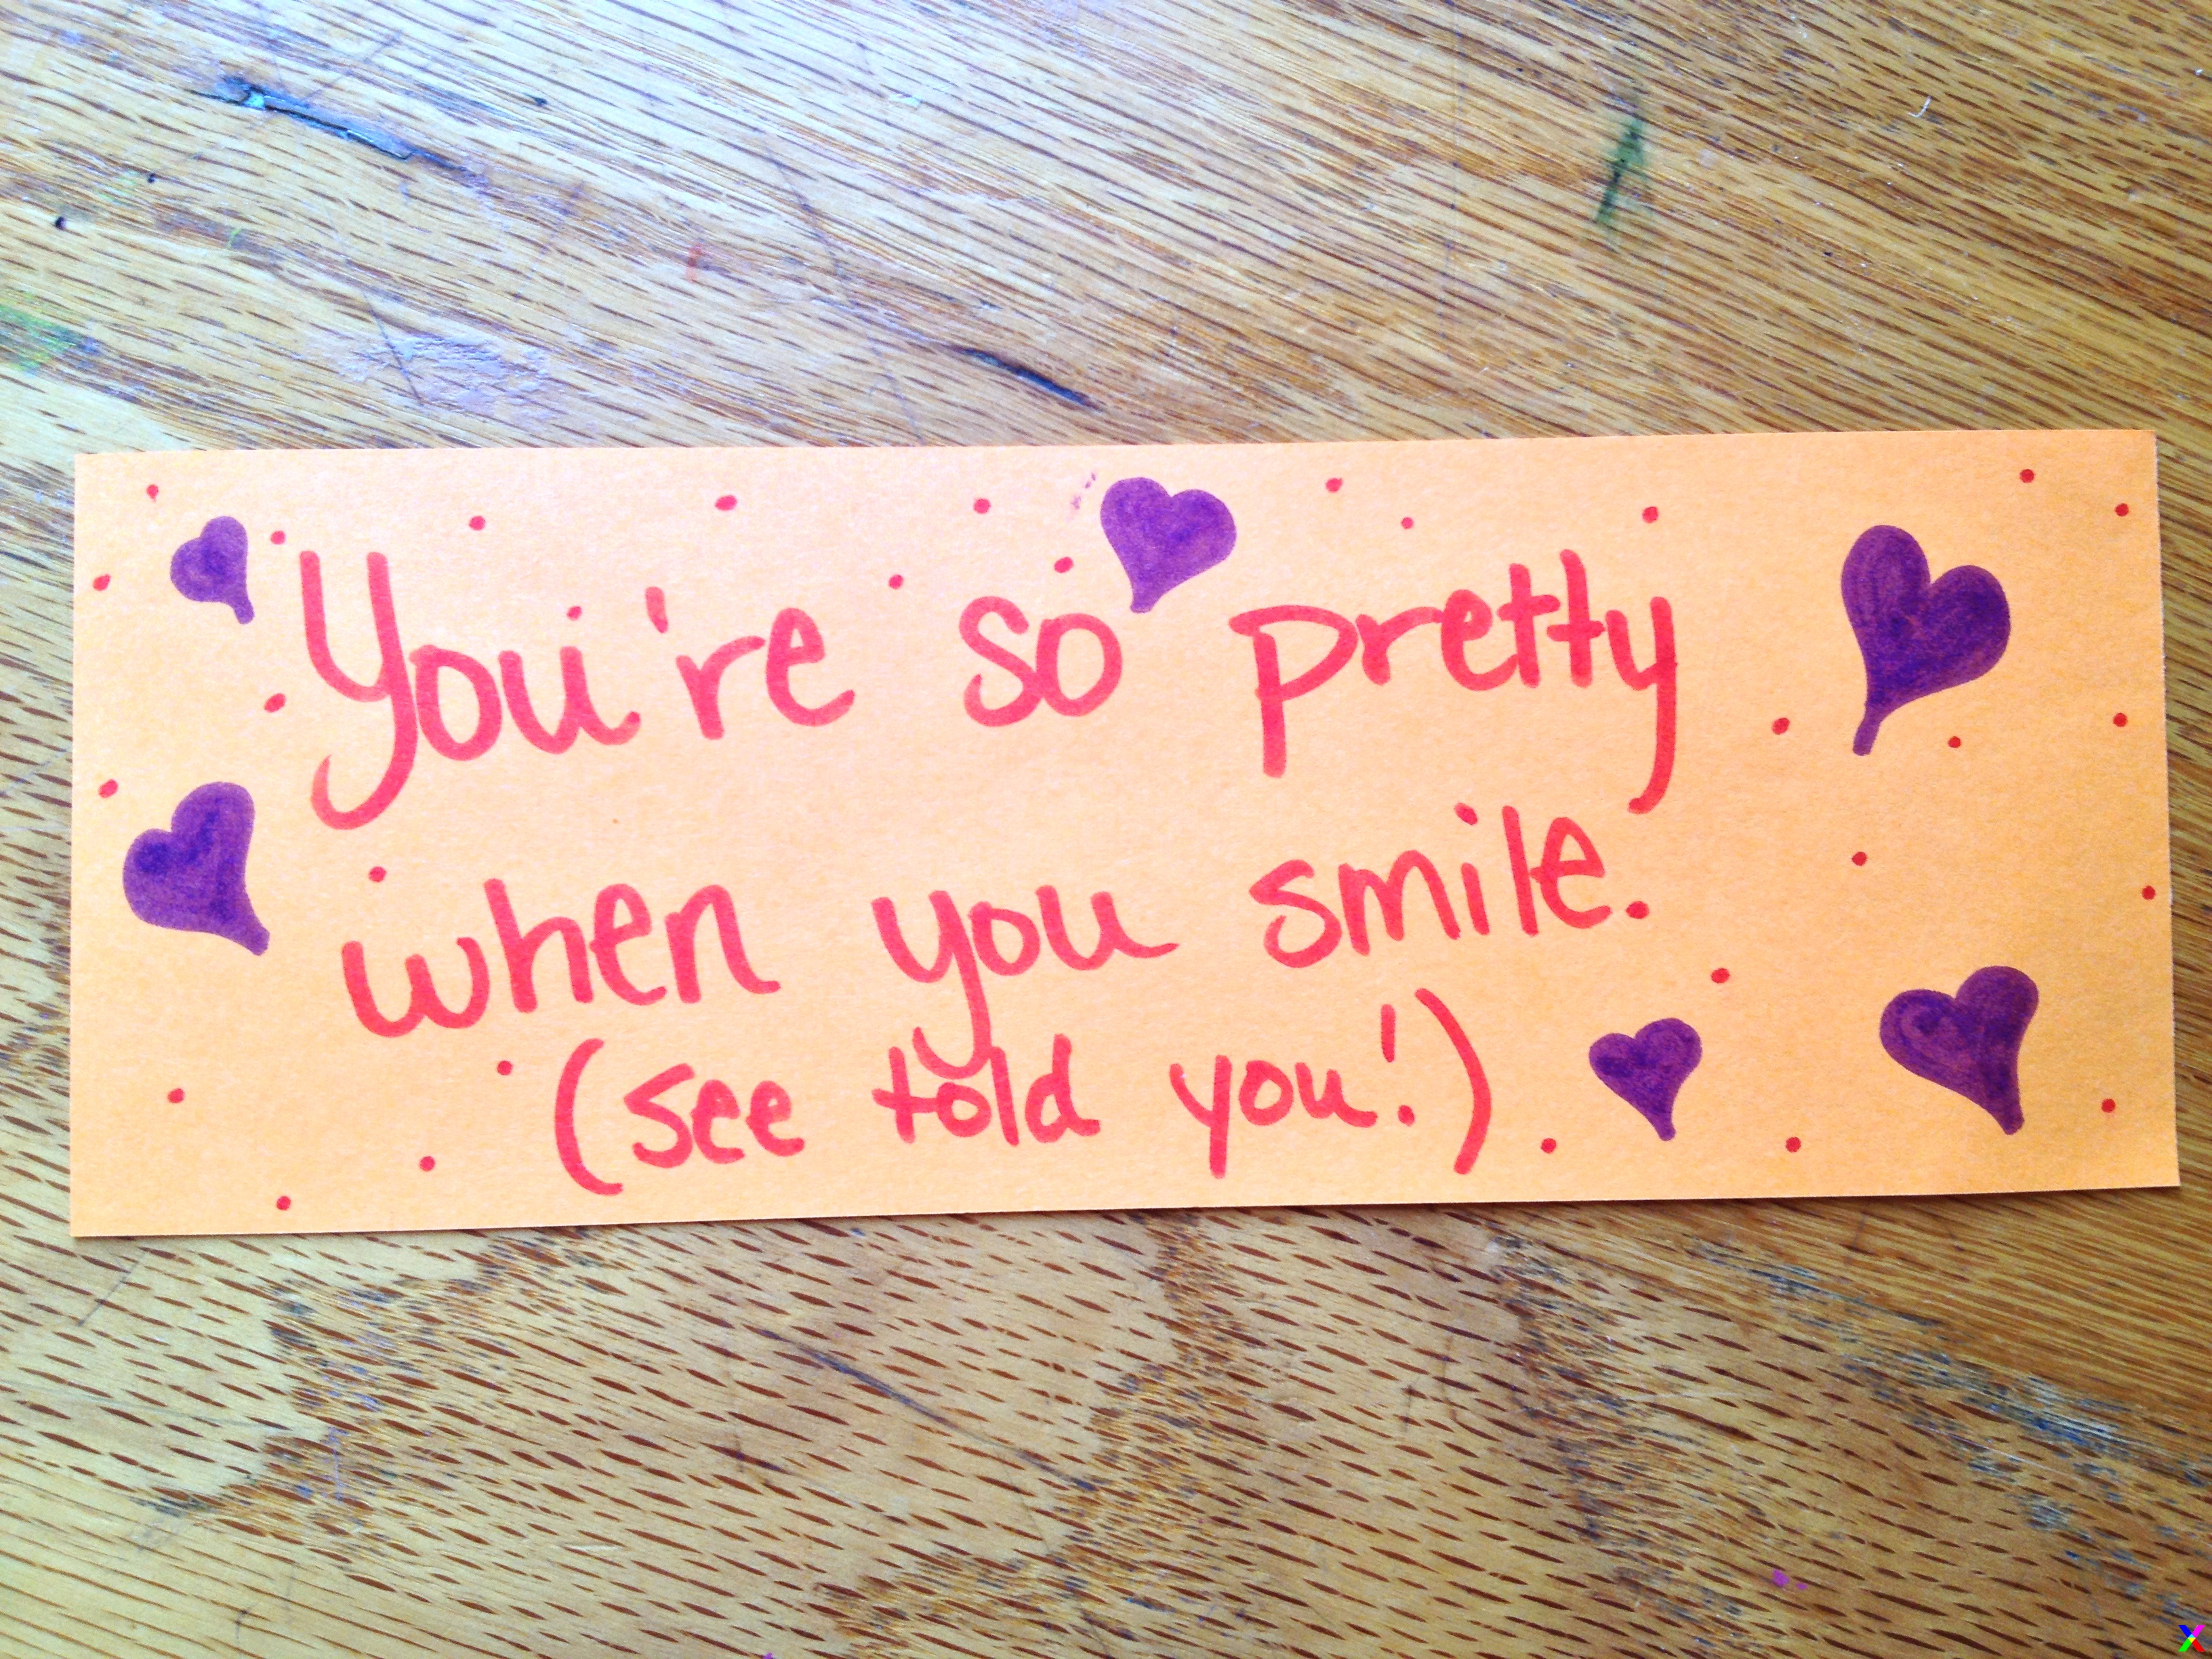 You're so pretty
when you smile.
(see told you!)